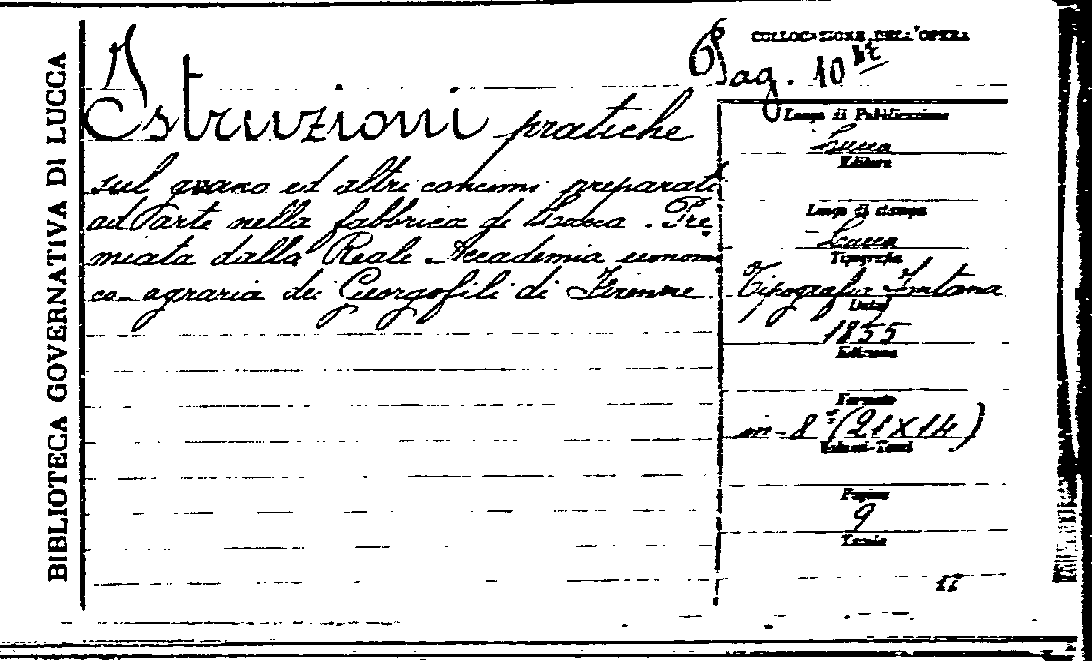 BIBLIOTECA GOVERNATIVA DI LUCCA
COLLOCAZIONE DELL'OPERA
Pag. 10
Istruzioni pratiche
sul guano ed altri concimi preparati
ad arte nella fabbrica di Lucca. Pre
miata dalla Reale Accademia economi
co-agraria dei Georgofili di Firenze
Luogo di Pubblicazione
Lucca
Editore
Luogo di stampa
Lucca
Tipografia
Tipografia Fontana
Data
1855
Edizione
Formato
in-8° (21x14)
Volumi-Tomi
Pagine
9
Tavole